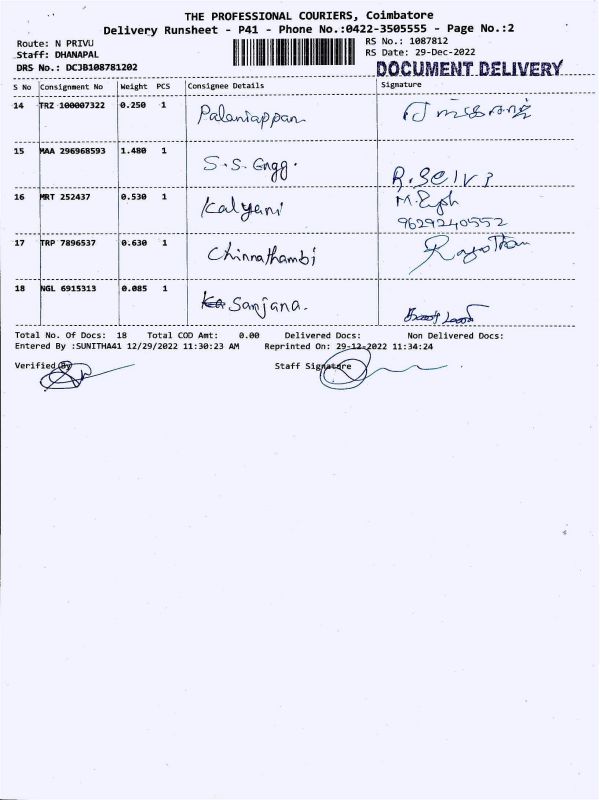 THE PROFESSIONAL COURIERS, Coimbatore
Delivery Runsheet - P41 - Phone No.:0422-3505555 - Page No.:2
Route: N PRIVU
Staff: DHANAPAL
DRS No.: DCJB108781202
RS No.: 1087812
RS Date: 29-Dec-2022
DOCUMENT DELIVERY
S No Consignment No Weight PCS Consignee Details Signature
14 TRZ 100007322 0.250 1 Palaniappan
15 MAA 296968593 1.480 1 S.S. Engg. R.Selvi
16 MRT 252437 0.530 1 Kalyani
9629240552
17 TRP 7896537 0.630 1 Chinnathambi
18 NGL 6915313 0.085 1 Sanjana.
Total No. Of Docs: 18 Total COD Amt: 0.00 Delivered Docs: Non Delivered Docs:
Entered By :SUNITHA41 12/29/2022 11:30:23 AM Reprinted On: 29-12-2022 11:34:24
Verified By Staff Signature